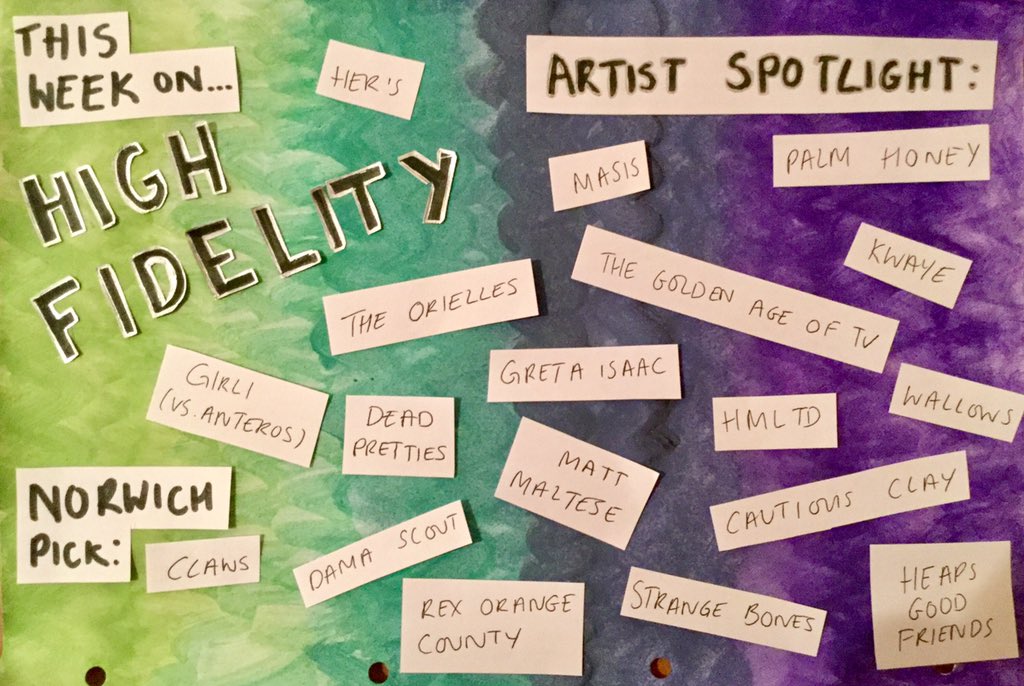 THIS
WEEK ON...
HIGH
FIDELITY
HER'S
ARTIST SPOTLIGHT:
MASIS
PALM HONEY
KWAYE
THE ORIELLES
THE GOLDEN AGE OF TV
GIRLI
(VS. ANTEROS)
DEAD
PRETTIES
GRETA ISAAC
HMLTD
WALLOWS
MATT
MALTESE
CAUTIOUS CLAY
NORWICH
PICK:
CLAWS
DAMA SCOUT
REX ORANGE
COUNTY
STRANGE BONES
HEAPS
GOOD
FRIENDS